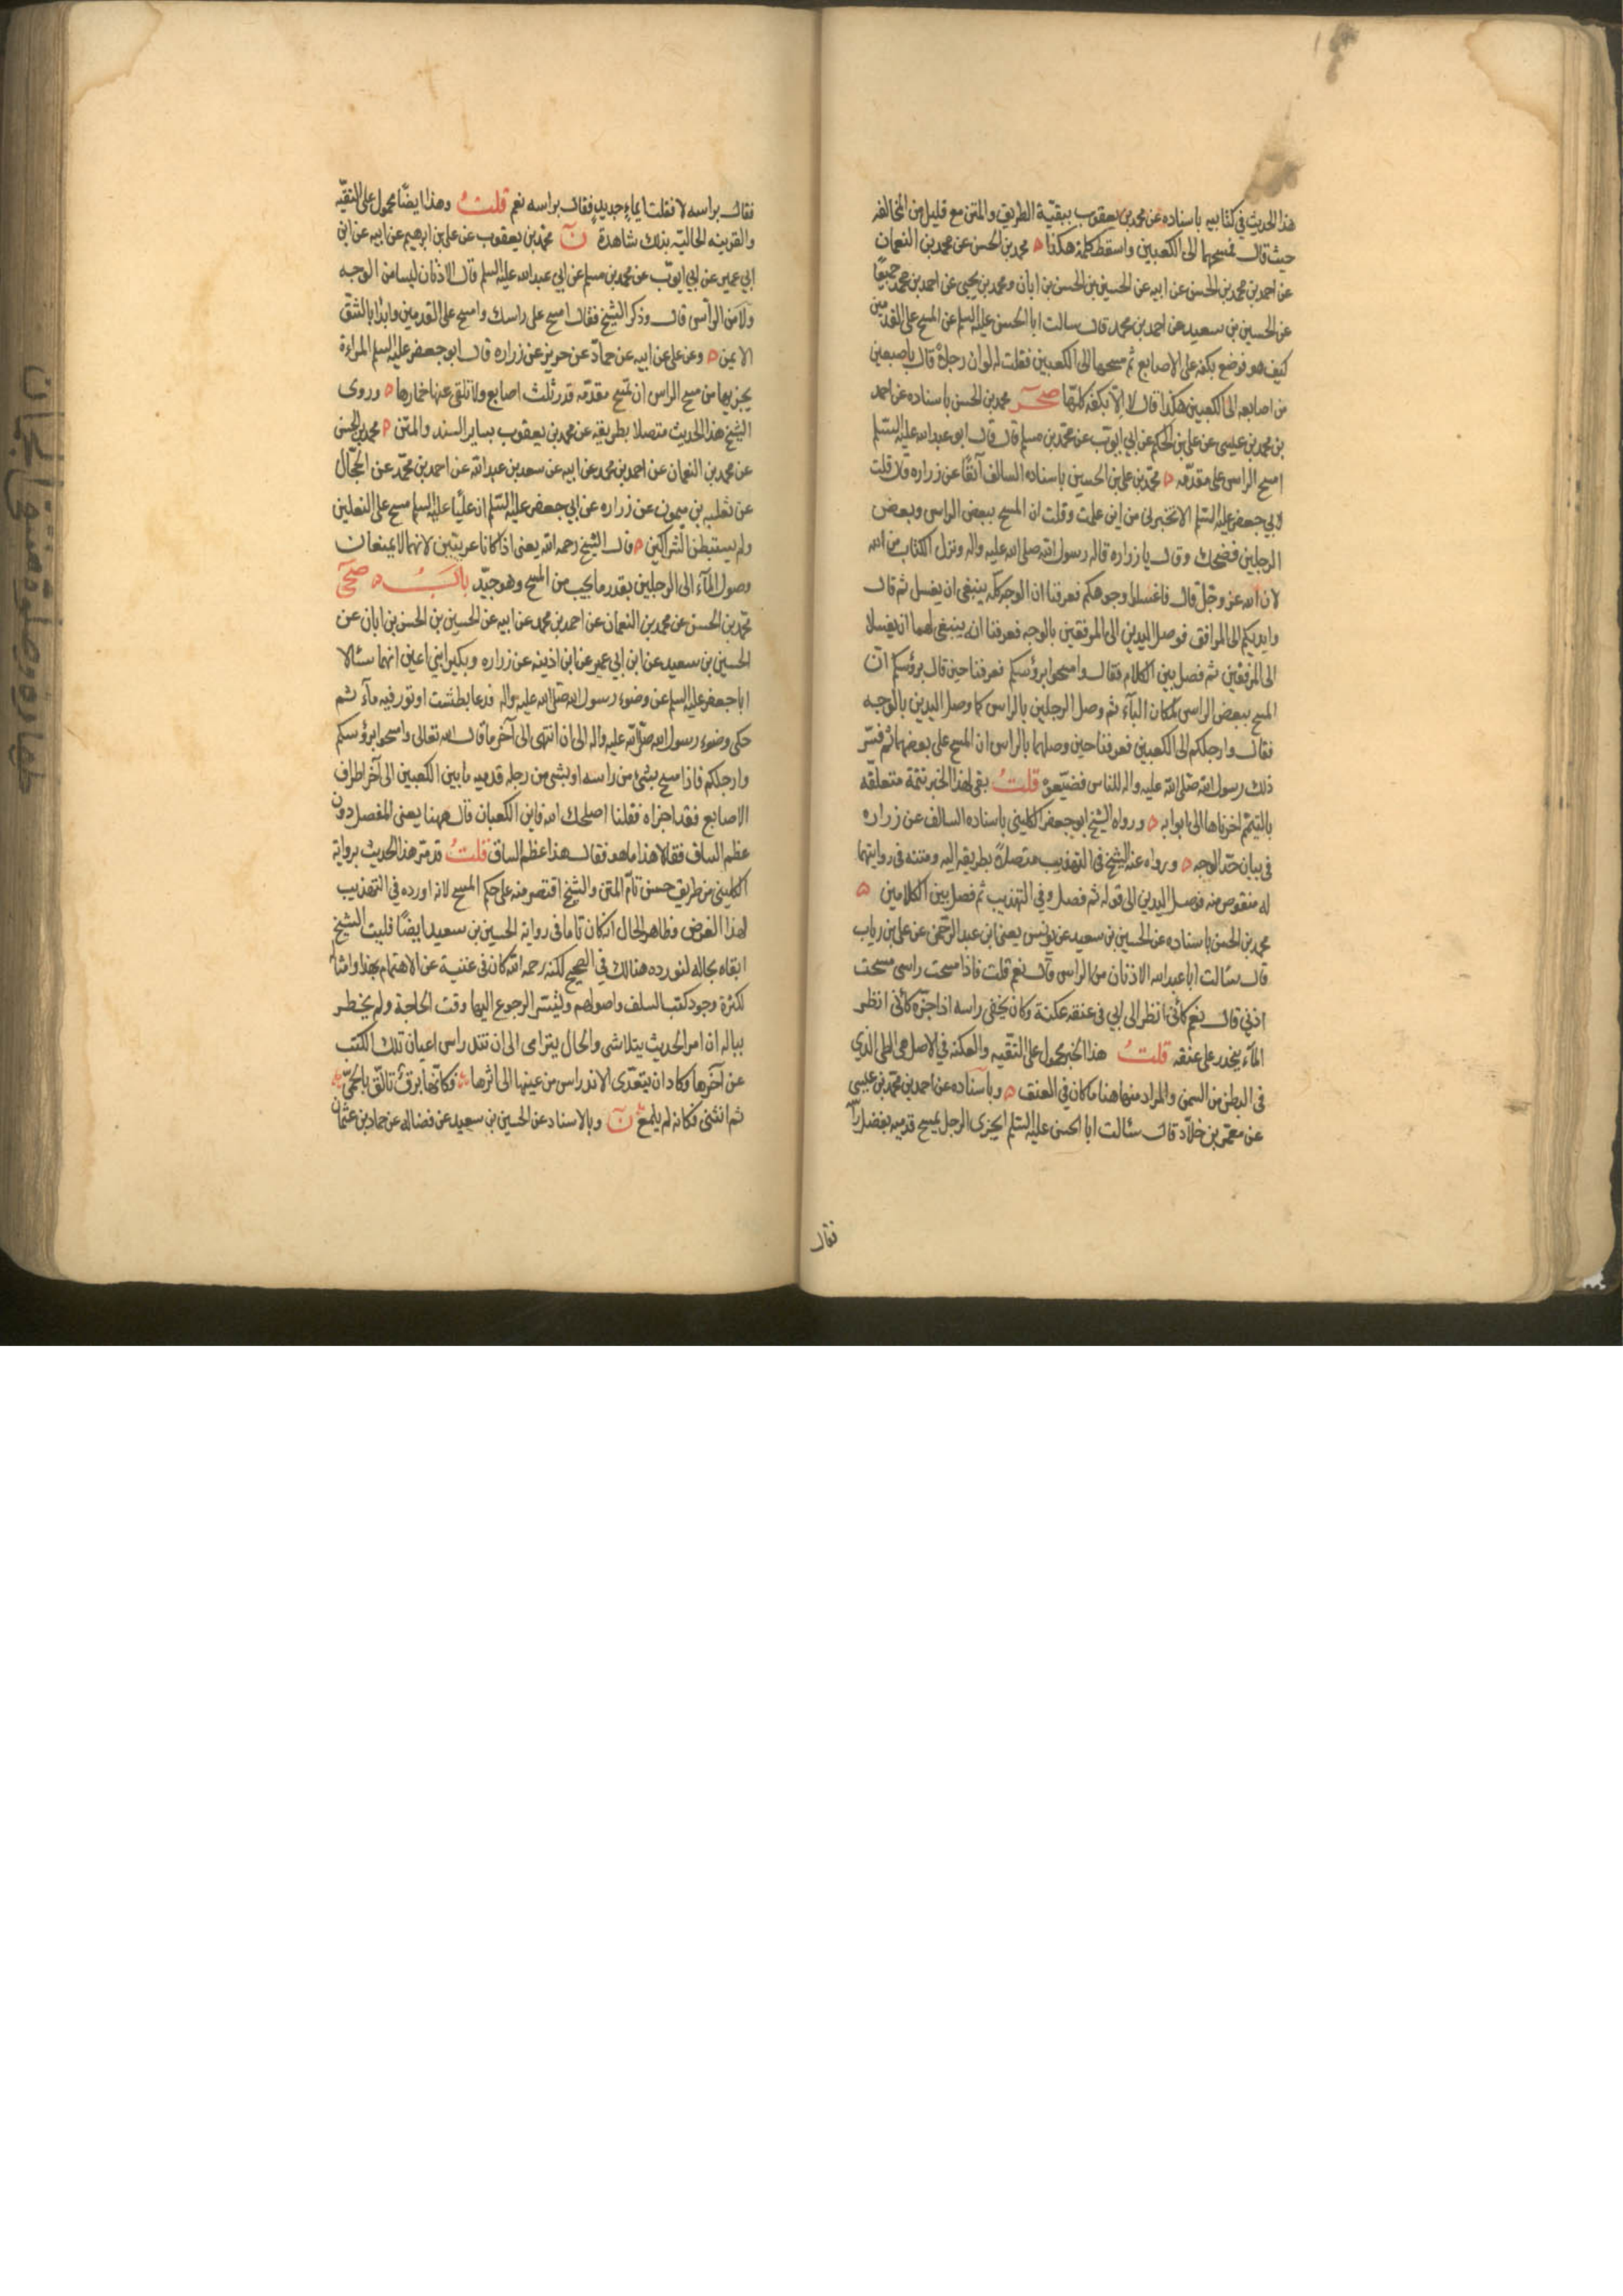 هذا الحديث في كتابيه باسناده عن محمد بن يعقوب ببقيّة الطريق والمتن مع قليل من المخالفة
حيث قال فمسحهما الى الكعبين واسقط كلمة هكذا ه محمد بن الحسن عن محمد بن النعمان
عن احمد بن محمد بن الحسن عن ابيه عن الحسين بن الحسن بن ابان ومحمد بن يحيى عن احمد بن محمد جميعًا
عن الحسين بن سعيد عن احمد بن محمد قال سالت ابا الحسن عليه السلم عن المسح على القدمين
كيف هو فوضع بكفه على الاصابع ثم مسحها الى الكعبين فقلت له لو ان رجلاً قال باصبعين
من اصابعه الى الكعبين هكذا قال لا الّا بكفه كلها صحر محمد بن الحسن باسناده عن احمد
بن محمد بن عيسى عن علي بن الحكم عن ابي ايوب عن محمد بن مسلم قال قال ابو عبد الله عليه السّلم
امسح الراس على مقدّمه ه محمّد بن علي بن الحسين باسناده السالف آنفًا عن زراره قال قلت
لابي جعفر عليه السّلم الا تخبرني من اين علمت وقلت ان المسح ببعض الراس وبعض
الرجلين فضحك وقال يا زراره قاله رسول الله صلى الله عليه واله ونزل الكتاب من الله
لان الله عز وجّل قال فاغسلوا وجوهكم فعرفنا ان الوجه كلّه ينبغي ان يغسل ثم قال
وايديكم الى المرافق فوصل اليدين الى المرفقين بالوجه فعرفنا انه ينبغي لهما ان يغسلا
الى المرفقين ثم فصل بين الكلام فقال وامسحوا برؤسكم فعرفنا حين قال برؤسكم انّ
المسح ببعض الراس لمكان البآء ثم وصل الرجلين بالراس كما وصل اليدين بالوجه
فقال وارجلكم الى الكعبين فعرفنا حين وصلهما بالراس ان المسح على بعضهما ثم فسّر
ذلك رسول الله صلى الله عليه واله للناس فضيّعوه قلتُ بقي لهذا الخبر تتمة متعلقه
بالتيمم اخرناها الى ابوابه ه ورواه الشيخ ابو جعفر الكليني باسناده السالف عن زراره
في بيان حدّ الوجه ه ورواه عنه الشيخ في التهذيب متصلاً بطريقه اليه ومتنه في روايتهما
له منقوص منه فوصل اليدين الى قوله ثم فصل وفي التهذيب ثم فصل بين الكلامين ه
محمد بن الحسن باسناده عن الحسين بن سعيد عن يونس يعني ابن عبد الرحمن عن علي بن رياب
قال سئالت ابا عبد الله الاذنان من الراس قال نعم قلت فاذا مسحت راسي مسحت
اذني قال نعم كأنّي انظر الى ابي في عنقه عكنة وكان يحفي راسه اذا جزّه كأنّي انظر
المآء ينحدر على عنقه قلتُ هذا الخبر محمول على التقيه والعكنه في الاصل هي الطي الذي
في البطن من السمن والمراد منها هنا ما كان في العنق ه وباسناده عن احمد بن محمّد بن عيسى
عن معمّر بن خلّاد قال سئالت ابا الحسن عليه السّلم ايجزي الرجل ان يمسح قدميه بفضل راسه
فقال
فقال براسه لا فقلت ابماءٍ جديدٍ فقال براسه نعم قلتُ وهذا ايضًا محمول على التقيّه
والقرينه الحاليّه بذلك شاهدة نَ محمّد بن يعقوب عن علي بن ابرهيم عن ابيه عن ابن
ابي عمير عن ابي ايوّب عن محمد بن مسلم عن ابي عبد الله عليه السلم قال الاذنان ليسا من الوجه
ولا من الرأس قال وذكر الشيخ فقال امسح على راسك وامسح على القدمين وابدأ بالشق
الايمن ه وعن علي عن ابيه عن حمّاد عن حريز عن زراره قال ابو جعفر عليه السلم المراءة
يجزيها من مسح الراس ان تمسح مقدّمه قدر ثلث اصابع ولا تلقي عنها خمارها ه وروى
الشيخ هذا الحديث متصلا بطريقه عن محمد بن يعقوب بساير السند والمتن ه محمد بن الحسن
عن محمد بن النعمان عن احمد بن محمد عن ابيه عن سعد بن عبد الله عن احمد بن محمّد عن الحجّال
عن ثعلبه بن ميمون عن زراره عن ابي جعفر عليه السّلم ان عليًا عليه السلم مسح على النعلين
ولم يستبطن الشراكين ه قال الشيخ رحمه الله يعني اذا كانا عربيّين لانهما لا يمنعان
وصول المآء الى الرجلين بقدر ما يجب من المسح وهو جيّد بابُ ه صحي
محمّد بن الحسن عن محمد بن النعمان عن احمد بن محمد عن ابيه عن الحسين بن الحسن بن ابان عن
الحسين بن سعيد عن ابن ابي عمير عن ابن اذينه عن زراره وبكير ابني اعين انهما سئالا
ابا جعفر عليه السلم عن وضوء رسول الله صلى الله عليه واله فدعا بطشت او تور فيه مآء ثم
حكى وضوء رسول الله صلى الله عليه واله الى ان انتهى الى آخر ما قال الله تعالى وامسحوا برؤسكم
وارجلكم فاذا مسح بشئ من راسه او بشئ من رجله قدميه ما بين الكعبين الى آخر اطراف
الاصابع فقد اجزاه فقلنا اصلحك الله فاين الكعبان قال ههنا يعني المفصل دون
عظم الساق فقالا هذا ما هو فقال هذا عظم الساق قلتُ قد مرّ هذا الحديث برواية
الكليني من طريق حسن تامّ المتن والشيخ اقتصر منه على حكم المسح لانه اورده في التهذيب
لهذا الغرض وظاهر الحال انه كان تاما في رواية الحسين بن سعيد ايضًا فليت الشيخ
ابقاه بحاله لنورده هنالك في الصحيح لكنه رحمه الله كان في غنية عن الاهتمام بهذا وامثاله
لكثرة وجود كتب السلف واصولهم وتيسّر الرجوع اليها وقت الحاجة ولم يخطر
بباله ان امر الحديث يتلاشى والحال يترامى الى ان تندراس اعيان تلك الكتب
عن آخرها وكاد ان يتعدّى الاندراس من عينها الى اثرها فكانّها برق تالّق بالحمىٰ
ثم انثنى فكانه لم يلمع نَ وبالاسناد عن الحسين بن سعيد عن فضاله عن حماد بن عثمان